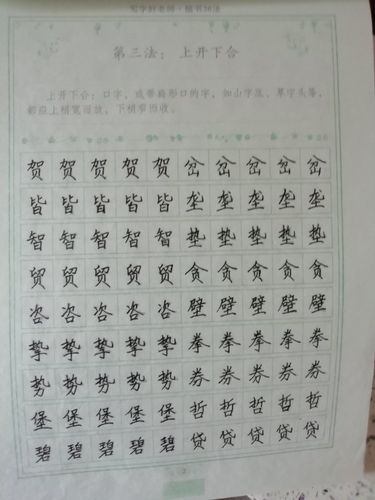 写字好老师·楷书36法
第三法：上开下合
上开下合：口字，或带扁形口的字，如山字底、草字头等，
都应上稍宽而放，下稍窄而收。
贺贺贺贺贺岔岔岔岔岔
皆皆皆皆皆垄垄垄垄垄
智智智智智垫垫垫垫垫
贸贸贸贸贸贪贪贪贪贪
咨咨咨咨咨壁壁壁壁壁
挚挚挚挚挚拳拳拳拳拳
势势势势势券券券券券
堡堡堡堡堡哲哲哲哲哲
碧碧碧碧碧贷贷贷贷贷
2